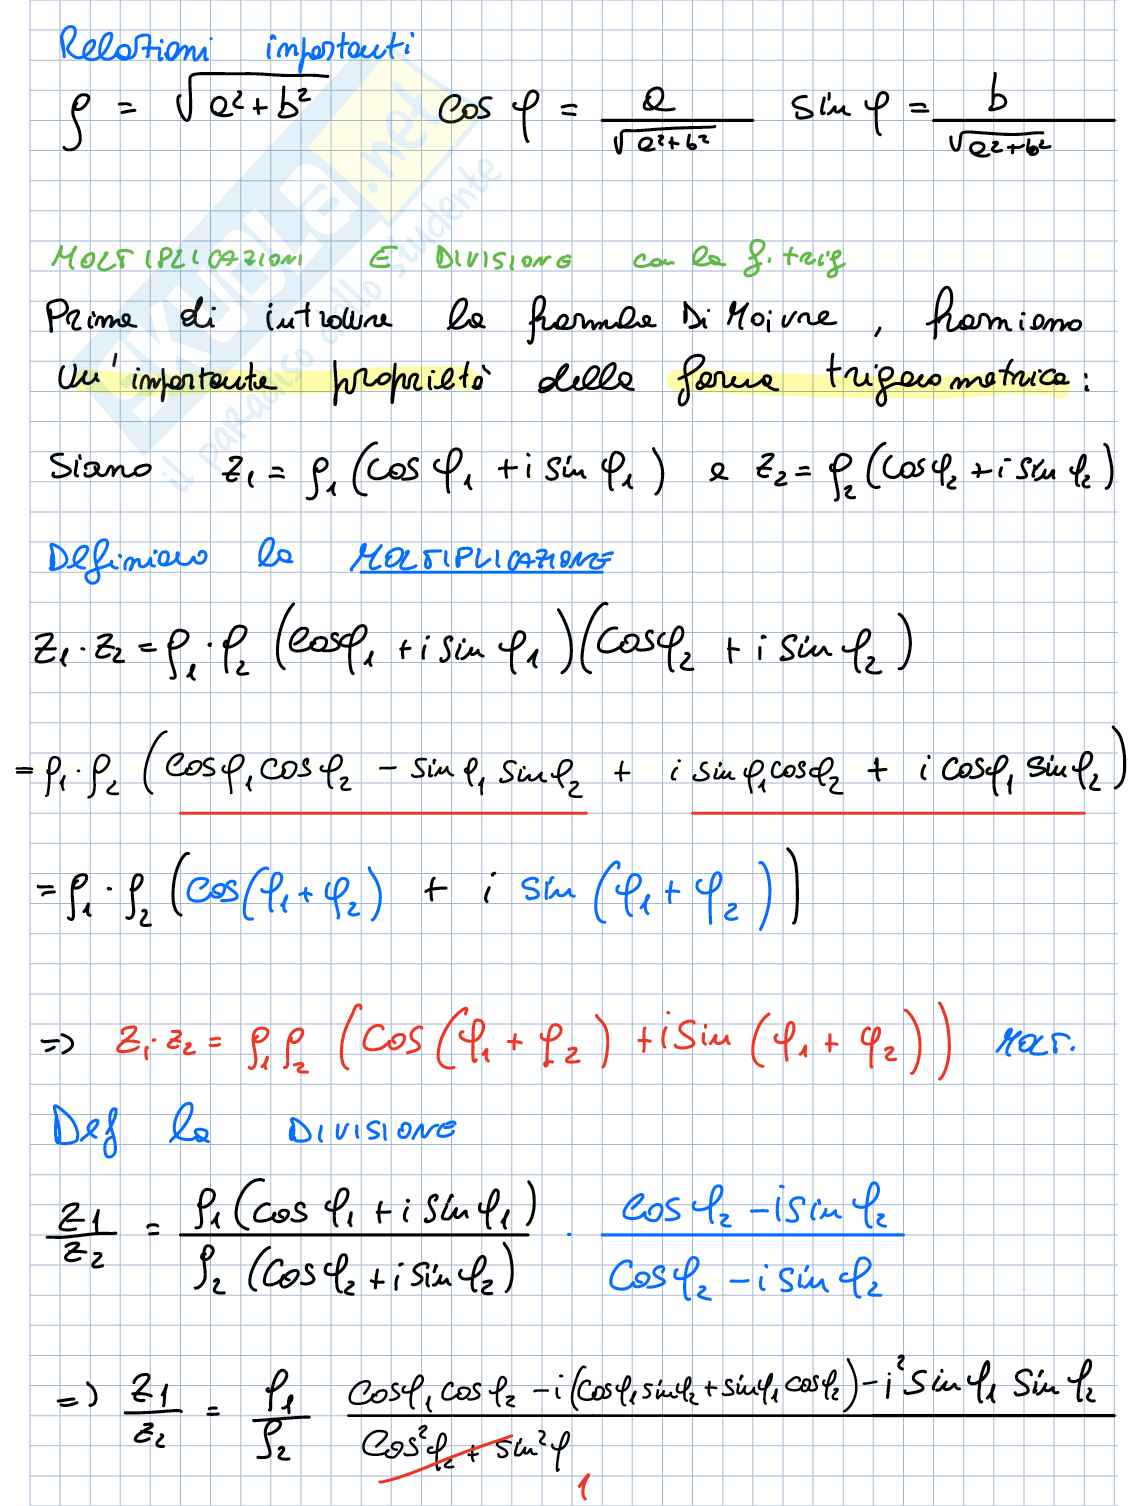 Relazioni importanti
ρ = √(a²+b²)   cos φ = a/√(a²+b²)   sin φ = b/√(a²+b²)
MOLTIPLICAZIONI E DIVISIONE con la f. trig
Prima di introdurre la formula Di Moivre, forniamo
un'importante proprietà della forma trigonometrica:
Siano z₁ = ρ₁ (cos φ₁ + i sin φ₁) e z₂ = ρ₂ (cos φ₂ + i sin φ₂)
Definiamo la MOLTIPLICAZIONE
z₁ · z₂ = ρ₁ · ρ₂ (cos φ₁ + i sin φ₁)(cos φ₂ + i sin φ₂)
= ρ₁ · ρ₂ (cos φ₁ cos φ₂ - sin φ₁ sin φ₂ + i sin φ₁ cos φ₂ + i cos φ₁ sin φ₂)
= ρ₁ · ρ₂ (cos(φ₁ + φ₂) + i sin (φ₁ + φ₂))
=> z₁ · z₂ = ρ₁ ρ₂ (cos (φ₁ + φ₂) + i sin (φ₁ + φ₂)) MOLT.
Def la DIVISIONE
z₁/z₂ = ρ₁ (cos φ₁ + i sin φ₁)/ρ₂ (cos φ₂ + i sin φ₂) · cos φ₂ - i sin φ₂/cos φ₂ - i sin φ₂
=> z₁/z₂ = ρ₁/ρ₂ cos φ₁ cos φ₂ - i (cos φ₁ sin φ₂ + sin φ₁ cos φ₂) - i² sin φ₁ sin φ₂/cos² φ₂ + sin² φ
1
SKUOLA.net
il paradiso dello studente